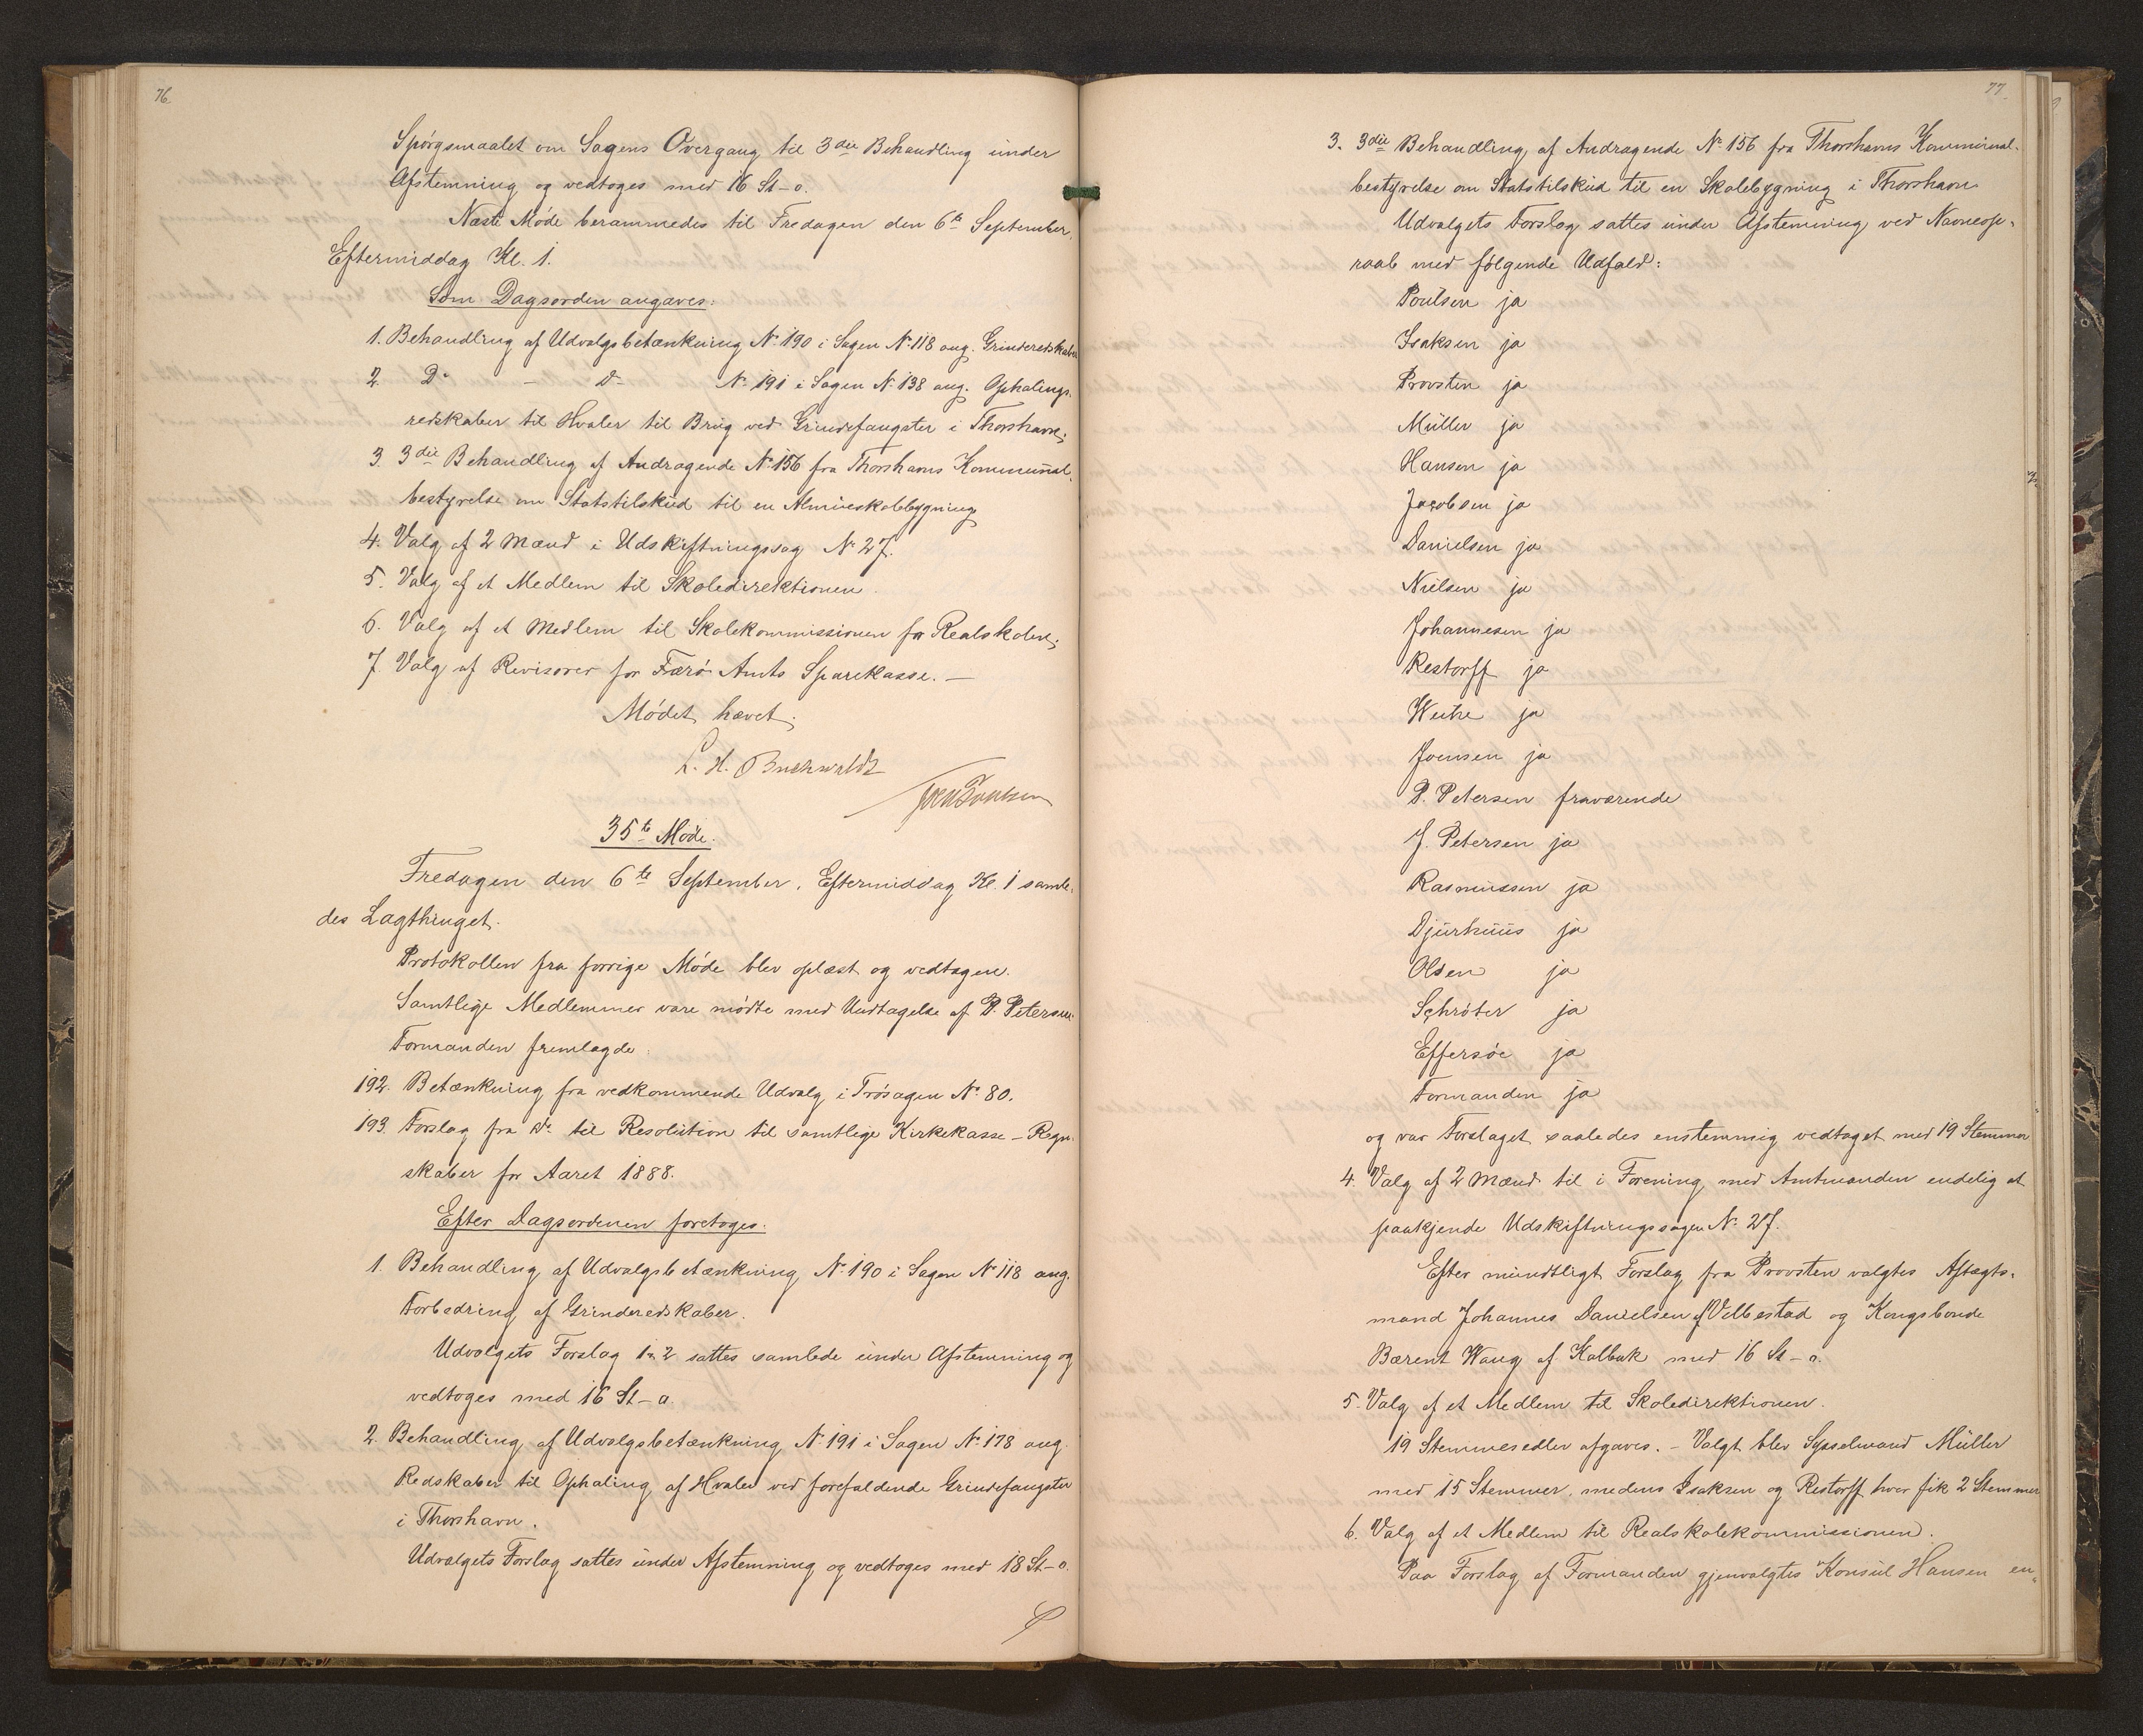 76.
Spórgsmaalet om Sagens Overgang til 3die Behandling under
Afstemning og vedtoges med 16 St-o.
Næste Móde berammedes til Fredagen den 6te September,
Eftermiddag Kl. 1.
Som Dagsorden angaves:
1. Behandling af Udvalgsbetænkning No 190 i Sagen No 118 ang. Grinderedskaber
2. Do - do No 191 i Sagen No 138 ang. Ophalings-
redskaber til Hvaler til Brug ved Grindefangster i Thorshavn;
3. 3die Behandling af Andragende No 156 fra Thorshavns Kommunal-
bestyrelse om Statstilskud til en Almueskolebygning
4. Valg af 2 Mænd i Udskiftningssag No 27.
5. Valg af et Medlem til Skoledirektionen.
6. Valg af et Medlem til Skolekommissionen for Realskolen;
7. Valg af Revisorer for Færó Amts Sparekasse. —
Módet hævet.
L. H. Buchwaldt
35te Móde.
Fredagen den 6te September, Eftermiddag Kl. 1 samle-
des Lagthinget.
Protokollen fra forrige Móde blev oplæst og vedtagen.
Samtlige Medlemmer vare módte med Undtagelse af P. Petersen.
Formanden fremlagde:
192. Betænkning fra vedkommende Udvalg i Trósagen No 80.
193. Forslag fra do til Resolution til samtlige Kirkekasse-Regn-
skaber for Aaret 1888.
Efter Dagsordenen foretoges:
1. Behandling af Udvalgsbetænkning No 190 i Sagen No 118 ang.
Forbedring af Grinderedskaber.
Udvalgets Forslag 1 2 sattes samlede under Afstemning og
vedtoges med 16 St-o.
2. Behandling af Udvalgsbetænkning No 191 i Sagen No 178 ang.
Redskaber til Ophaling af Hvaler ved forefaldende Grindefangster
i Thorshavn.
Udvalgets Forslag sattes under Afstemning og vedtoges med 18 St-o.
77.
3. 3die Behandling af Andragende No 156 fra Thorshavns Kommunal-
bestyrelse om Statstilskud til en Skolebygning i Thorshavn
Udvalgets Forslag sattes under Afstemning ved Navneop-
raab med fólgende Udfald:
Poulsen ja
Isaksen ja
Provsten ja
Müller ja
Hansen ja
Jacobsen ja
Danielsen ja
Nielsen ja
Johannesen ja
Restorff ja
Weihe ja
Joensen ja
P. Petersen fraværende
J. Petersen ja
Rasmussen ja
Djurhuus ja
Olsen ja
Schróter ja
Effersóe ja
Formanden ja
og var Forslaget saaledes enstemmig vedtaget med 19 Stemmer
4. Valg af 2 Mænd til i Forening med Amtmanden endelig at
paakjende Udskiftningssagen No 27.
Efter mundtligt Forslag fra Provsten valgtes Aftægts-
mand Johannes Danielsen af Velbestad og Kongsbonde
Bærent Waag af Kalbak med 16 St-o.
5. Valg af et Medlem til Skoledirektionen.
19 Stemmesedler afgaves. - Valgt blev Sysselmand Müller
med 15 Stemmer, medens Isaksen og Restorff hver fik 2 Stemmer
6. Valg af et Medlem til Realskolekommissionen.
Paa Forslag af Formanden gjenvalgtes Konsul Hansen en-